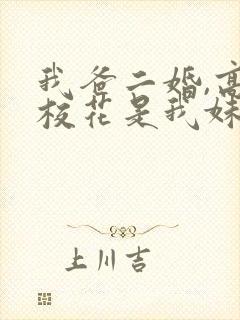 我爸二婚,高
校花是我妹
上川吉